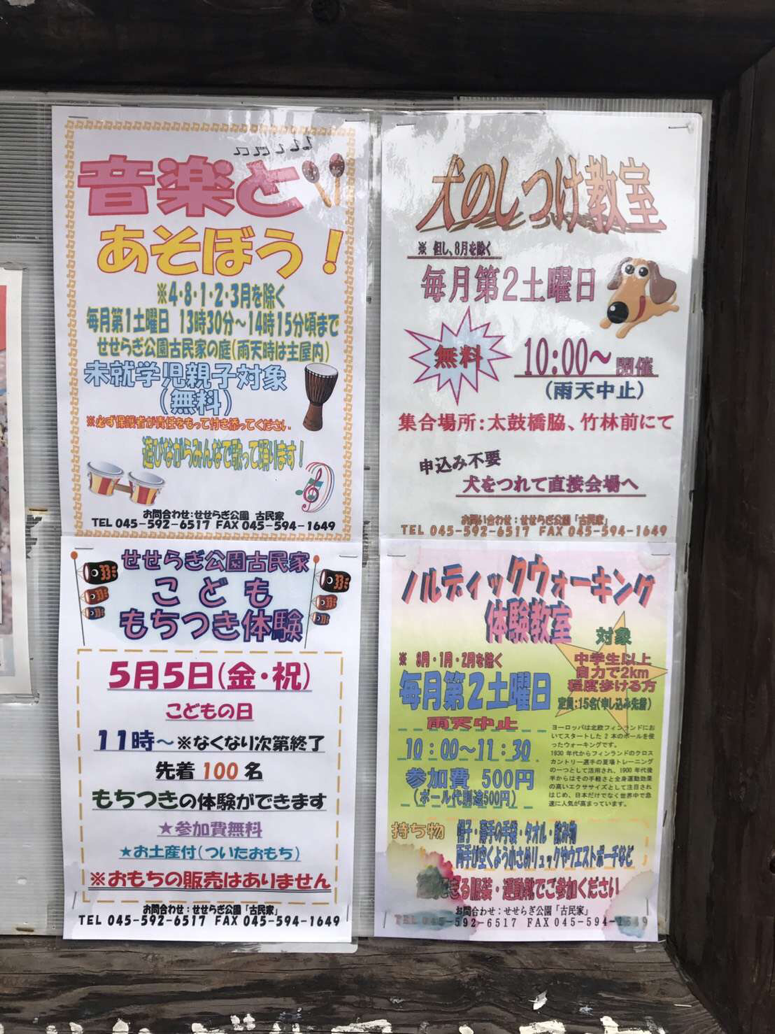 音楽と
あそぼう！
※4・8・1・2・3月を除く
毎月第1土曜日 13時30分～14時15分頃まで
せせらぎ公園古民家の庭(雨天時は主屋内)
未就学児親子対象
(無料)
※必ず保護者が責任をもって付き添ってください
遊びながらみんなで歌って踊ります！
お問合わせ：せせらぎ公園 古民家
TEL 045-592-6517 FAX 045-594-1649
犬のしつけ教室
※ 但し、8月を除く
毎月第2土曜日
無料
10:00～開催
(雨天中止)
集合場所：太鼓橋脇、竹林前にて
申込み不要
犬をつれて直接会場へ
お問い合わせ：せせらぎ公園「古民家」
TEL 045-592-6517 FAX 045-594-1649
せせらぎ公園古民家
こども
もちつき体験
5月5日(金・祝)
こどもの日
11時～※なくなり次第終了
先着 100 名
もちつきの体験ができます
★参加費無料
★お土産付(ついたおもち)
※おもちの販売はありません
お問合わせ：せせらぎ公園「古民家」
TEL 045-592-6517 FAX 045-594-1649
ノルディックウォーキング
体験教室
対象
中学生以上
自力で2km
程度歩ける方
定員：15名(申し込み先着)
※ 8月・1月・2月を除く
毎月第2土曜日
雨天中止
10：00～11：30
参加費 500円
(ポール代別途500円)
ヨーロッパは北欧フィンランドにお
いてスタートした2本のポールを使
ったウォーキングです。
1930年代からフィンランドのクロス
カントリー選手の夏場トレーニング
の一つとして活用され、1990年代後
半からはその手軽さと全身運動効果
の高いエクササイズとして注目され
はじめ、日本だけでなく世界中で急
速に人気が高まっています。
持ち物 帽子・薄手の手袋・タオル・飲み物
両手が空くよう小さめリュックやウエストポーチなど
る服装・運動靴でご参加ください
お問合わせ：せせらぎ公園「古民家」
TEL 045-592-6517 FAX 045-594-1649